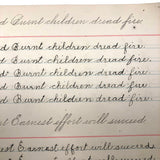 d Burnt children dread fire
d Burnt children dread fire.
d Burnt children dread fire.
d Burnt children dread fire.
d Burnt children dread fire.
st Earnest effort will succeed
est Earnest effort will succeed